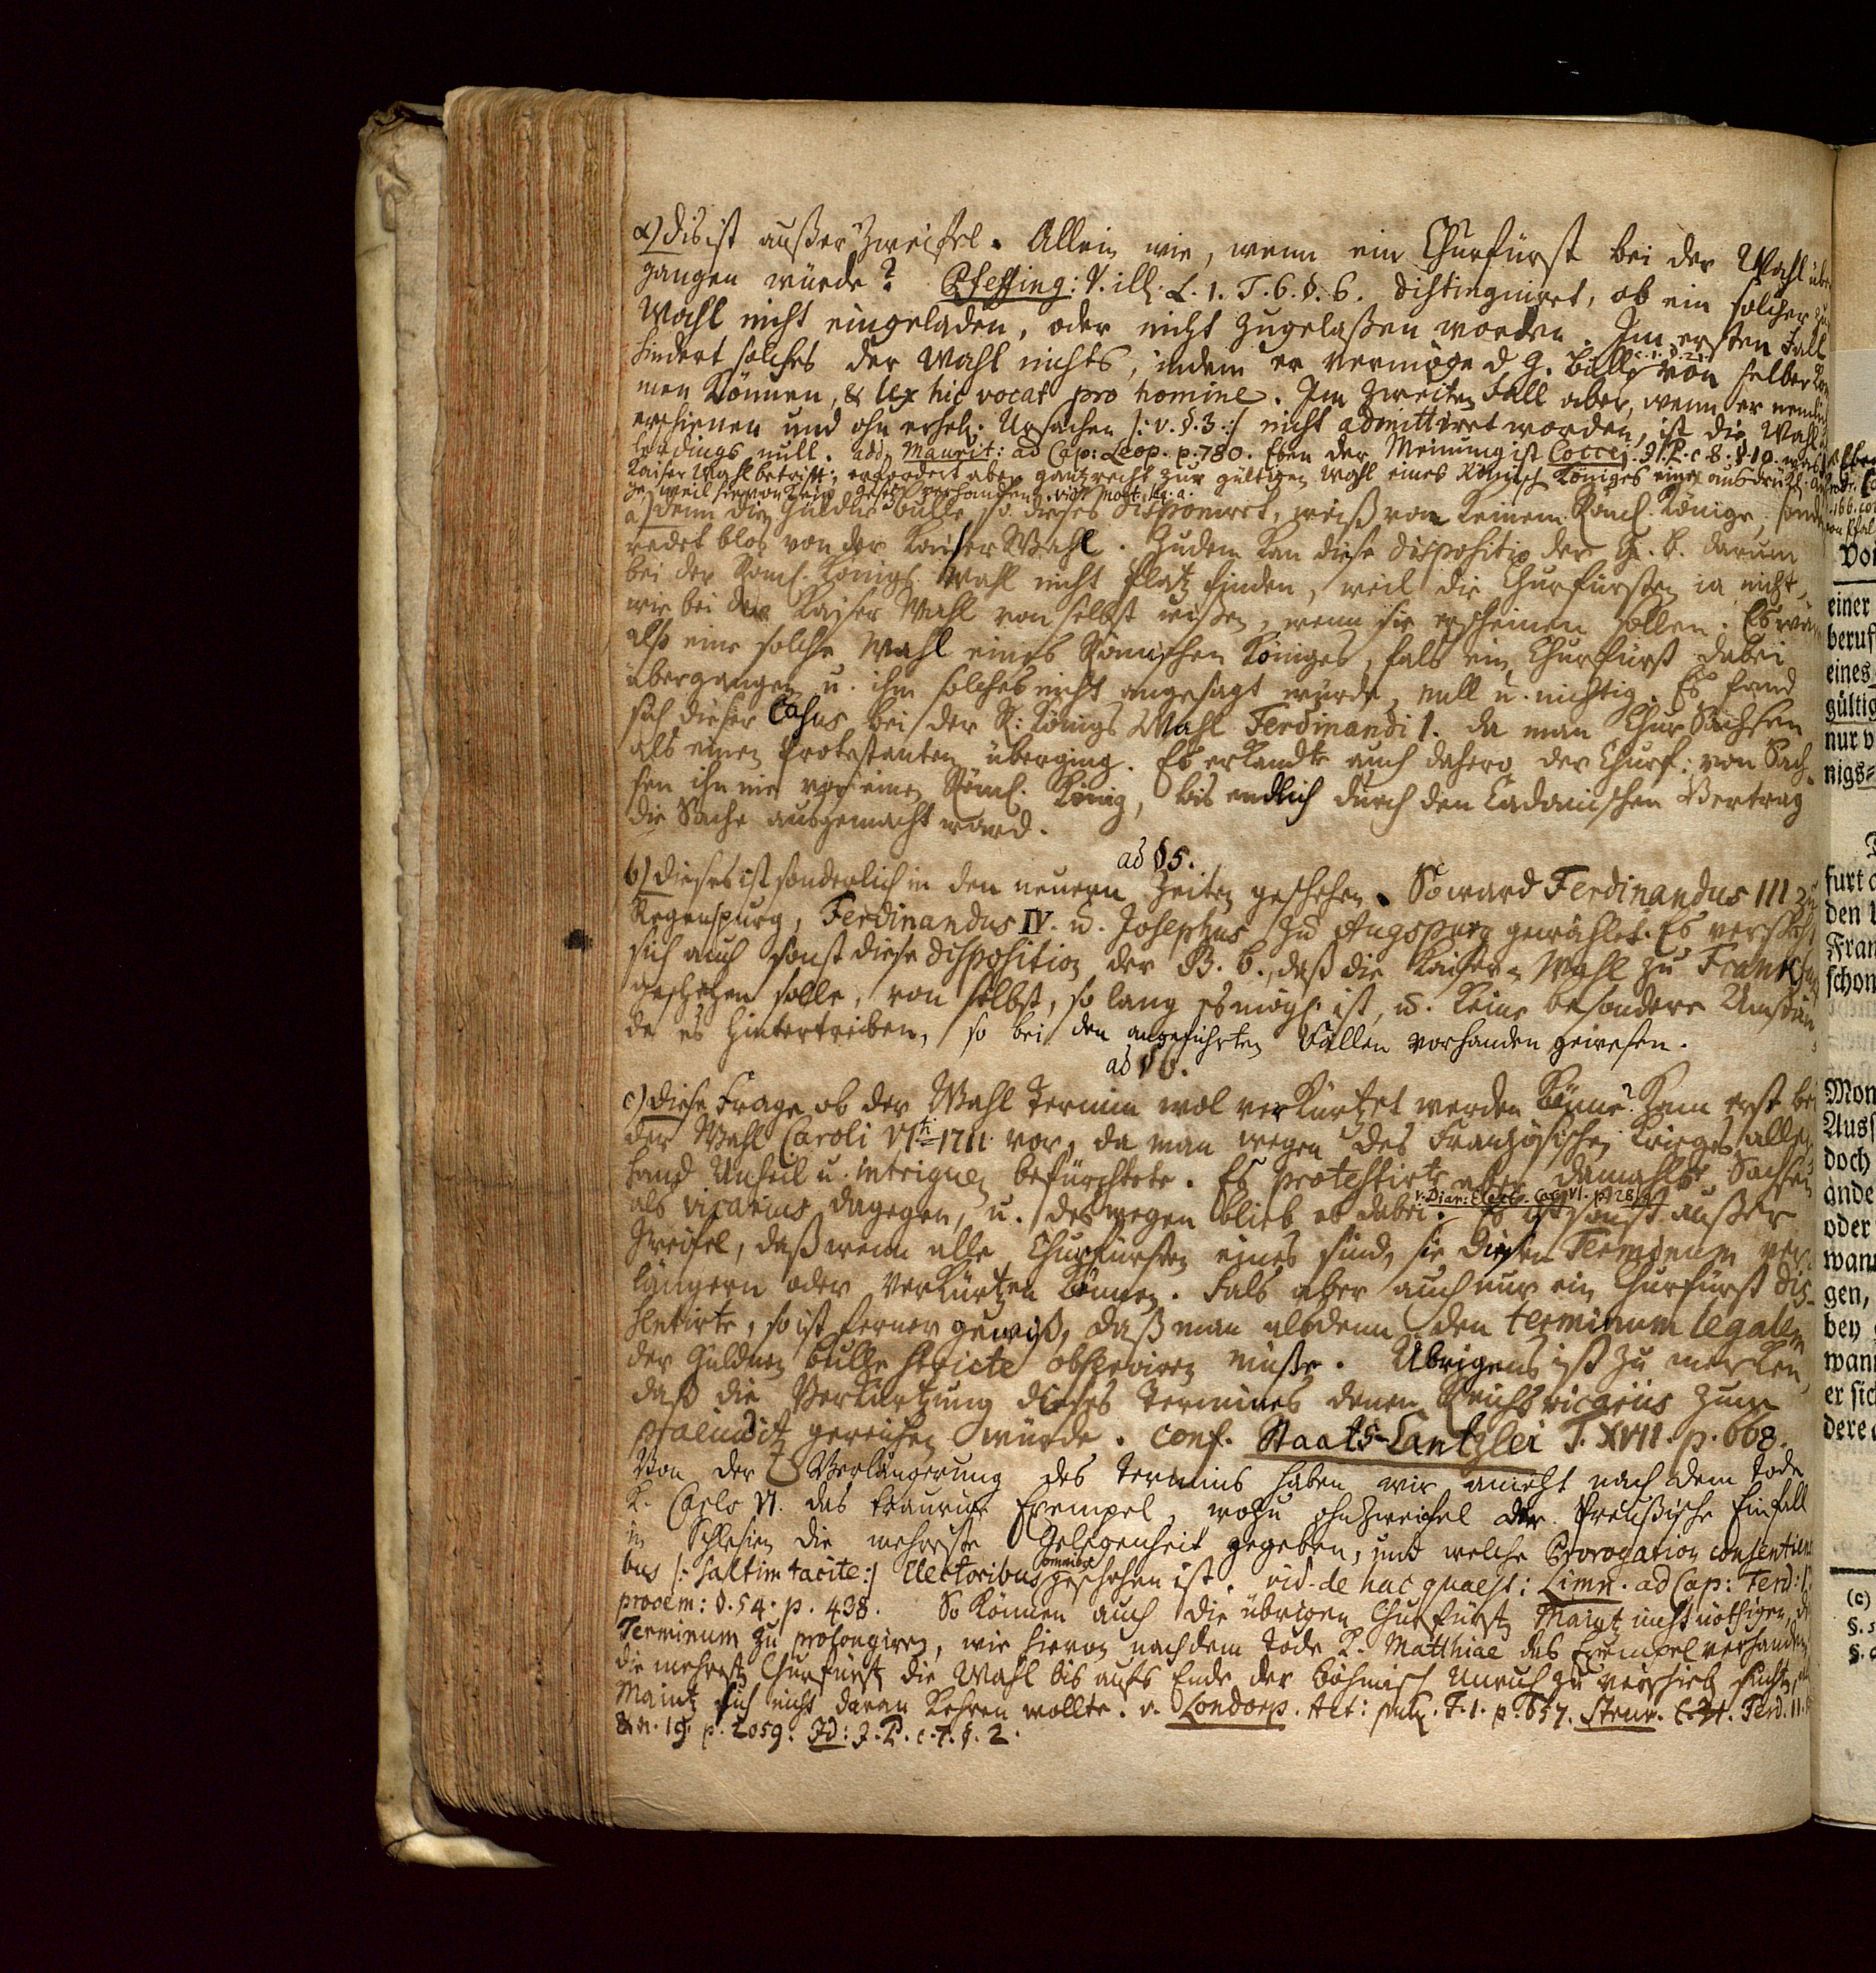 α) Dis ist außer Zweifel. Allein wie, wenn ein Churfürst bei der Wahl über
gangen würde? Pfeffing: V. ill. L. 1. T. 6. §. 6. distinguiret, ob ein solcher zur
Wahl nicht eingeladen, oder nicht zugelaßen worden. Im ersten Fall
hindert solches der Wahl nichts, indem er vermöge d G. Bulle c. 1. §. 21. von selber kom
men können, & lex hic vocat pro homine. Im Zweiten Fall aber, wenn er nemlich
erschienen und ohn erhebl. Ursachen /: v. §. 3. :/ nicht admittiret worden, ist die Wahl al
lerdings null. add. Maurit: ad Cap: Leop. p. 780. Eben der Meinung ist Coccej. J. P. c. 8. §. 10. was die
Kaiser Wahl betrift; erfordert aber gantz recht zur gültigen Wahl eines Römisch Königes eine ausdrückl.
weil hievon kein Gesetz vorhanden.
a) denn die Güldne Bulle, so dieses disponiret, weiß von keinem Röml. Könige, sondern
redet blos von der Kaiser Wahl. Zudem kan diese dispositio der G. B. darum
bei der Röml. Königs Wahl nicht platz finden, weil die Churfürsten ia nicht,
wie bei der Kaiser Wahl von selbst wißen, wenn sie erscheinen sollen. Es wär
also eine solche Wahl eines Römischen Königes, fals ein Churfürst dabei
übergangen u. ihm solches nicht angesagt würde, null u. nichtig. Es fand
sich dieser Casus bei der R: Königs Wahl Ferdinandi 1. da man Chur Sachsen
als einen Protestanten überging. Es erkandte auch dahero der Churf: von Sach-
sen ihn nie vor einen Röml. König, bis endlich durch den Cadanischen Vertrag
die Sache ausgemacht ward.
ad § 5.
b) Dieses ist sonderlich in den neuern Zeiten geschehen. So ward Ferdinandus III zu
Regenspurg, Ferdinandus IV. u. Josephus zu Augspurg gewählet. Es versteht
sich auch sonst diese disposition der G. B., daß die Kaiser-Wahl zu Franckfurt
geschehen solle, von selbst, so lang es mögl. ist, u. keine besondere Umstän
de es hintertreiben, so bei den angeführten Fällen vorhanden gewesen.
ad § 6.
c) Diese Frage ob der Wahl Termin wol verkürtzet werden könne? kam erst bei
der Wahl Caroli VIti 1711 vor, da man wegen des Französischen Krieges aller
hand Unheil u. intriguen befürchtete. Es protestirte aber damahls Sachsen
als vicarius dagegen, u. deswegen blieb es dabei. v. Diar: Elect. Car. VI. p. 28. Es ist sonst außer
Zweifel, daß wenn alle Churfürsten eines sind, sie diesen Terminum ver
längern oder verkürtzen können. Fals aber auch nur ein Churfürst dis-
sentirte, so ist ferner gewiß, daß man alsdenn den terminum legalem
der Güldnen Bulle stricte observiren müße. Übrigens ist zu mercken,
daß die Verkürtzung dieses Termines denen Reichsvicariis zum
praeiuditz gereichen würde. conf. Staats-Cantzlei T. XVII. p. 668.
Von der Verlängerung des Termins haben wir anietzt nach dem Tode
K. Carls VI. das traurige Exempel, wozu ohn Zweifel der Preußische Einfall
in Schlesien die mehreste Gelegenheit gegeben, und welche Prorogation consentien
bus /: saltim tacite :/ Electoribus omnibus geschehen ist. vid. de hac quaest: Limn. ad Cap: Ferd:
prooem: §. 54. p. 438. So können auch die übrigen Churfürst Maintz nicht nöthigen, den
Terminum zu prolongiren, wie hievon nach dem Tode K. Matthiae das Exempel verhanden
die mehrste Churfürst die Wahl bis aufs Ende der Böhmisch Unruh zu verschieben suchte,
Maintz sich nicht daran kehren wollte. v. Londorp. Act: publ. T. 1. p. 657. Struv. C. H. Ferd. II.
& n. 19. p. 2059. Id: J. P. c. 7. §. 2.
Vo
einer
beruf
eines
gültig
nur v
nigs=
furt
den
Fran
schon
Mon
Auss
doch
ände
oder
wann
gen,
bey
wan
er sich
dere
(c)